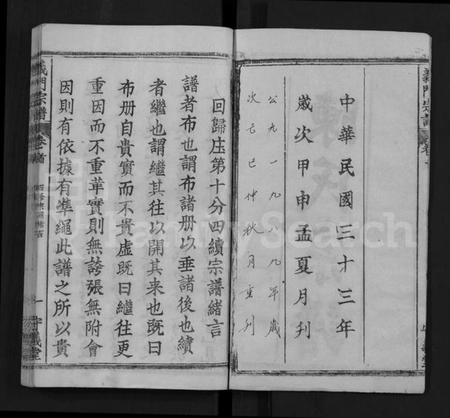 中華民國三十三年
歲次甲申孟夏月刋
公元一九八九年歲
次己巳仲秋月重刋
回歸庄第十分四續宗譜緒言
譜者布也謂布諸册以垂諸後也續
者繼也謂繼其往以開其來也既曰
布册自貴實而不貴虛既曰繼往更
重因而不重華實則無誇張無附會
因則有依據有準繩此譜之所以貴
義門宗譜
卷首
FamilySearch